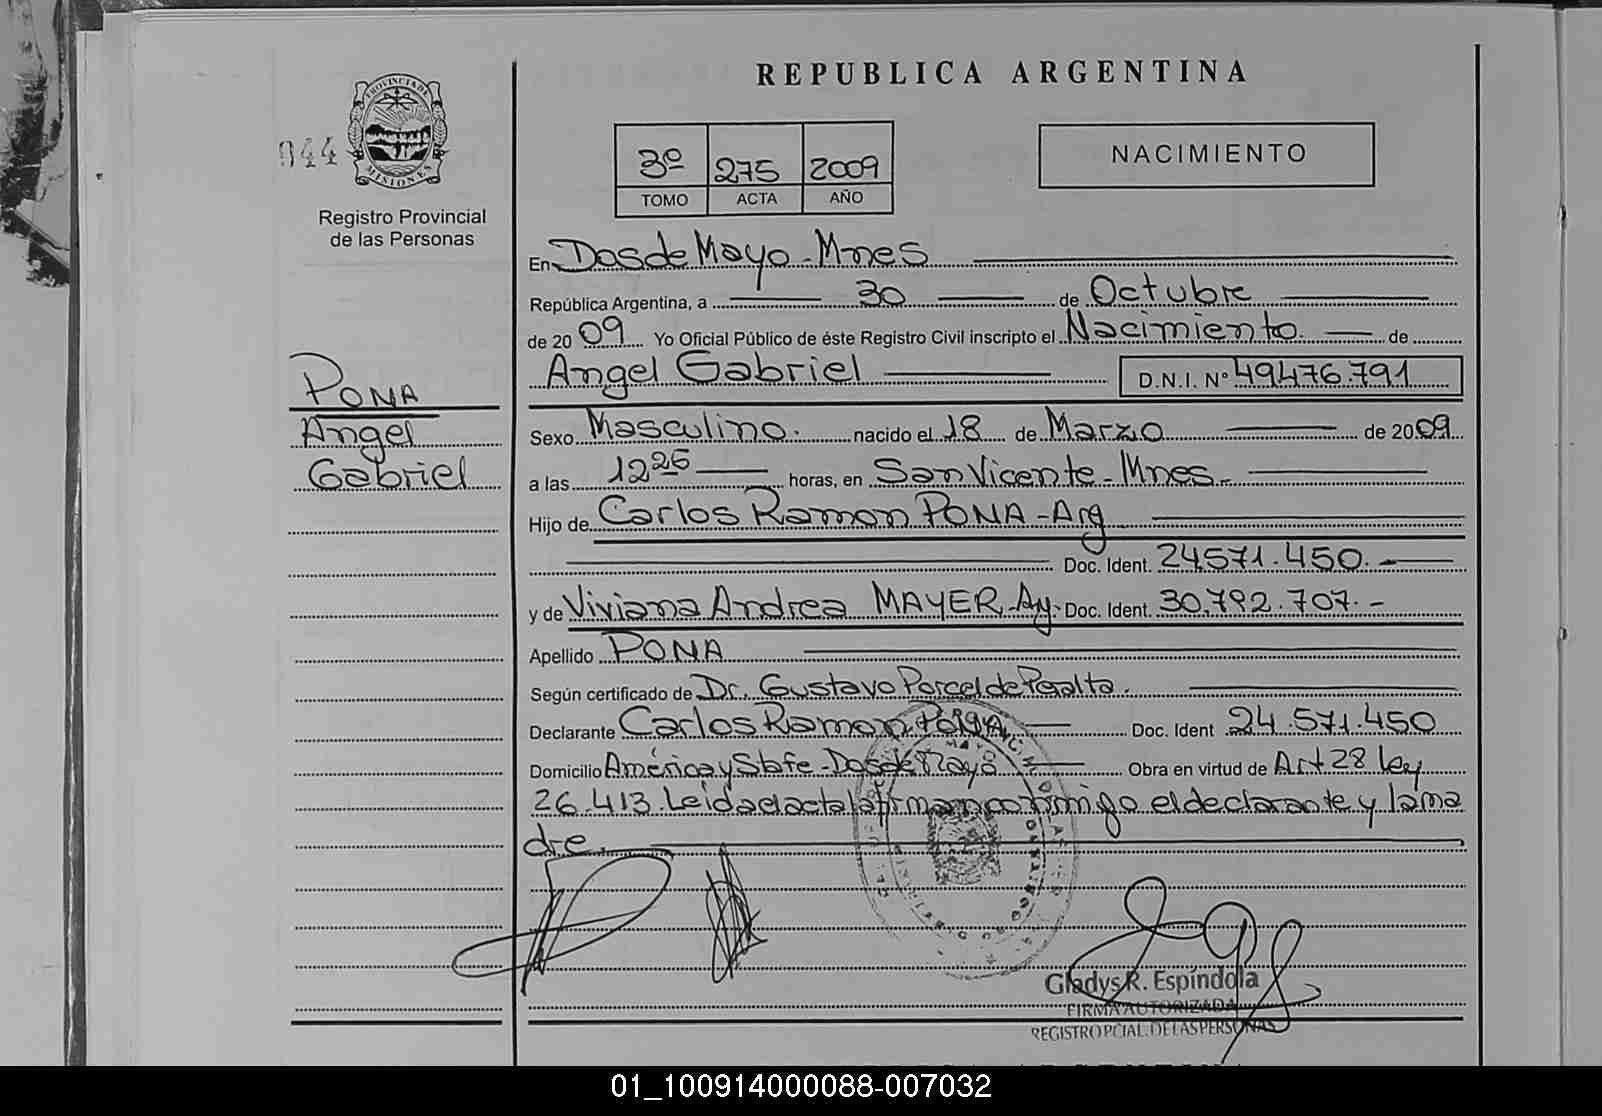 REPUBLICA ARGENTINA
PROVINCIA DE MISIONES
044
Registro Provincial
de las Personas
3º 275 2009
TOMO ACTA AÑO
NACIMIENTO
En Dos de Mayo - Mnes
República Argentina, a 30 de Octubre
de 2009 Yo Oficial Público de éste Registro Civil inscripto el Nacimiento. de
Angel Gabriel D.N.I. Nº 49476.791
PONA
Angel
Gabriel
Sexo Masculino. nacido el 18 de Marzo de 2009
a las 12 26 horas, en San Vicente - Mnes.
Hijo de Carlos Ramon PONA - Arg
Doc. Ident. 24571.450.-
y de Viviana Andrea MAYER - Arg. Doc. Ident. 30.792.707.-
Apellido PONA
Según certificado de Dr. Gustavo Porcel de Peralta.
Declarante Carlos Ramon PONA Doc. Ident 24.571.450
Domicilio América y Sta fe - Dos de Mayo Obra en virtud de Art 28 ley
26.413. Leida el acta la firman conmigo el declarante y la ma
dre.
Gladys R. Espíndola
FIRMA AUTORIZADA
REGISTRO PCIAL. DE LAS PERSONAS
01_100914000088-007032